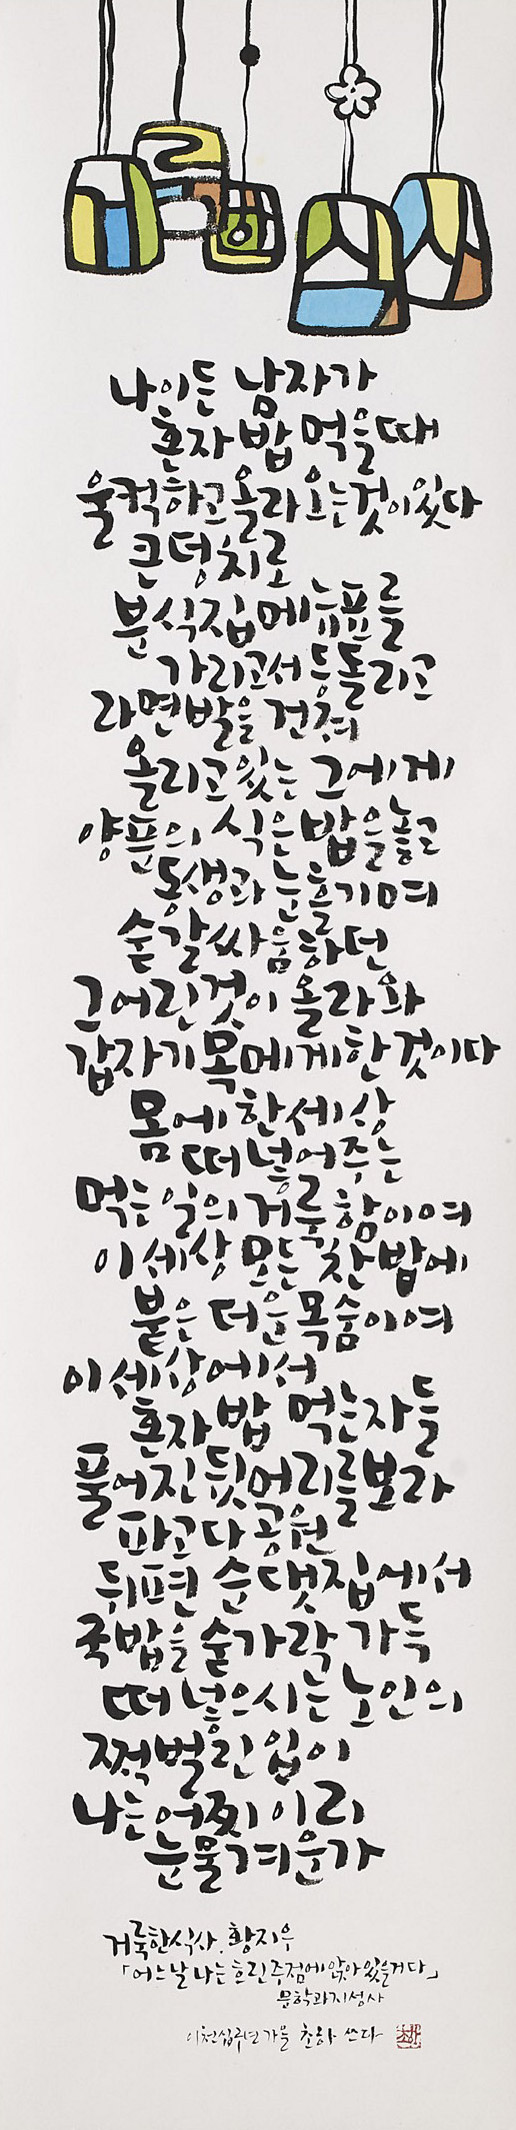 나이든 남자가
혼자 밥 먹을때
울컥하고 올라오는것이있다
큰덩치로
분식집메뉴표를
가리고서 등돌리고
라면발을 건져
올리고있는 그에게
양푼의 식은밥을놓고
동생과 눈흘기며
숟갈싸움하던
그어린것이 올라와
갑자기목메게한것이다
몸에 한세상
떠넣어주는
먹는일의거룩함이여
이세상 모든 찬밥에
붙은 더운목숨이여
이세상에서
혼자 밥 먹는자들
풀어진뒷머리를보라
파고다공원
뒤편 순댓집에서
국밥을 숟가락 가득
떠 넣으시는 노인의
쩍벌린입이
나는어찌 이리
눈물겨운가
거룩한식사. 황지우
「어느날 나는흐린주점에앉아있을거다」
문학과지성사
이천십주년가을 초하 쓰다